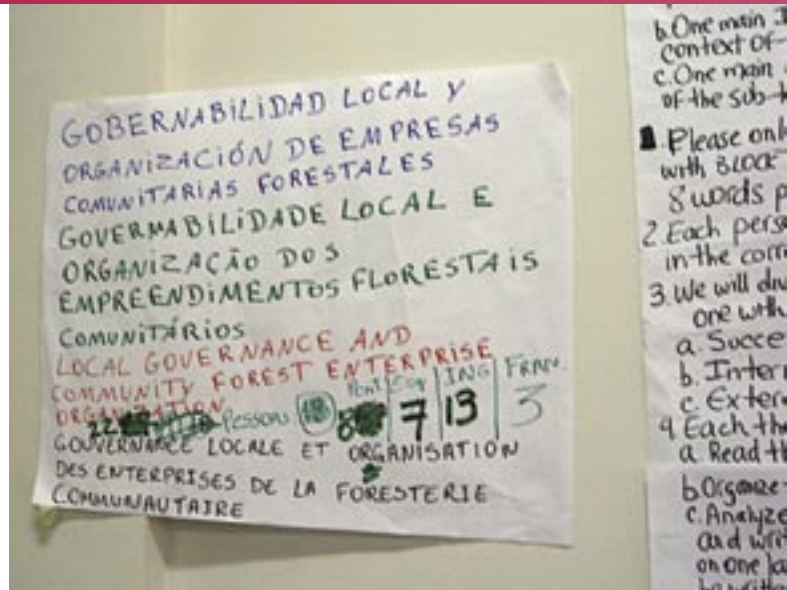 GOBERNABILIDAD LOCAL Y
ORGANIZACIÓN DE EMPRESAS
COMUNITARIAS FORESTALES
GOVERMABILIDADE LOCAL E
ORGANIZAÇÃO DOS
EMPREENDIMENTOS FLORESTAIS
COMUNITÁRIOS
LOCAL GOVERNANCE AND
COMMUNITY FOREST ENTERPRISE
ORGANIZATION
Port Esp ING FRAN.
22 Pessoas 18 7 13 3
GOUVERNANCE LOCALE ET ORGANISATION
DES ENTERPRISES DE LA FORESTERIE
COMMUNAUTAIRE
b. One main
context of
c. One main
of the sub-
Please
with BLOCK
8 words
2. Each
in the
3. We will
one with
a.
b.
c.
4 Each
a. Read
b.
c. Analyze
and
on one